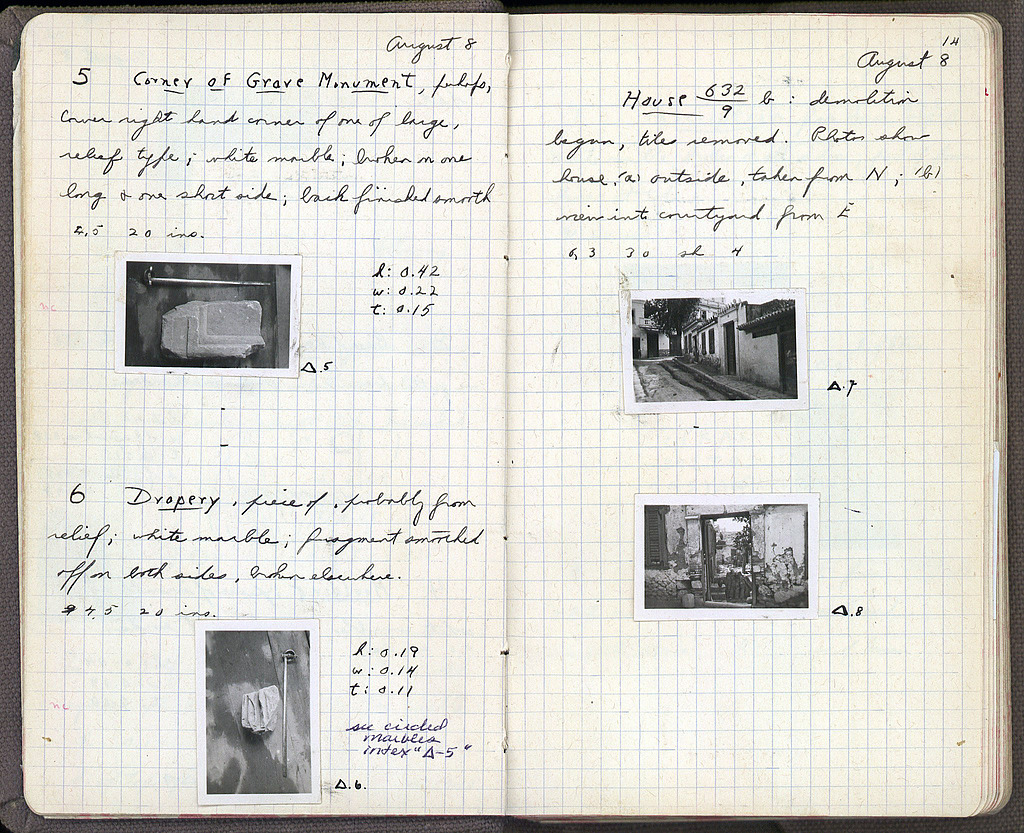 August 8
5 Corner of Grave Monument, perhaps,
lower right hand corner of one of large,
relief type; white marble; broken on one
long & one short side; back finished smooth
4,5 20 ins.
h: 0.42
w: 0.22
t: 0.15
nc
Δ.5
6 Drapery, piece of, probably from
relief; white marble; fragment smoothed
off on both sides, broken elsewhere.
4,5 20 ins.
h: 0.19
w: 0.14
t: 0.11
nc
see circled
marbles
index "Δ-5"
Δ.6.
14
August 8
House 632/9 b: demolition
begun, tiles removed. Photos show
house, (a) outside, taken from N; (b)
view into courtyard from E
6,3 30 sh 4
Δ.7
Δ.8